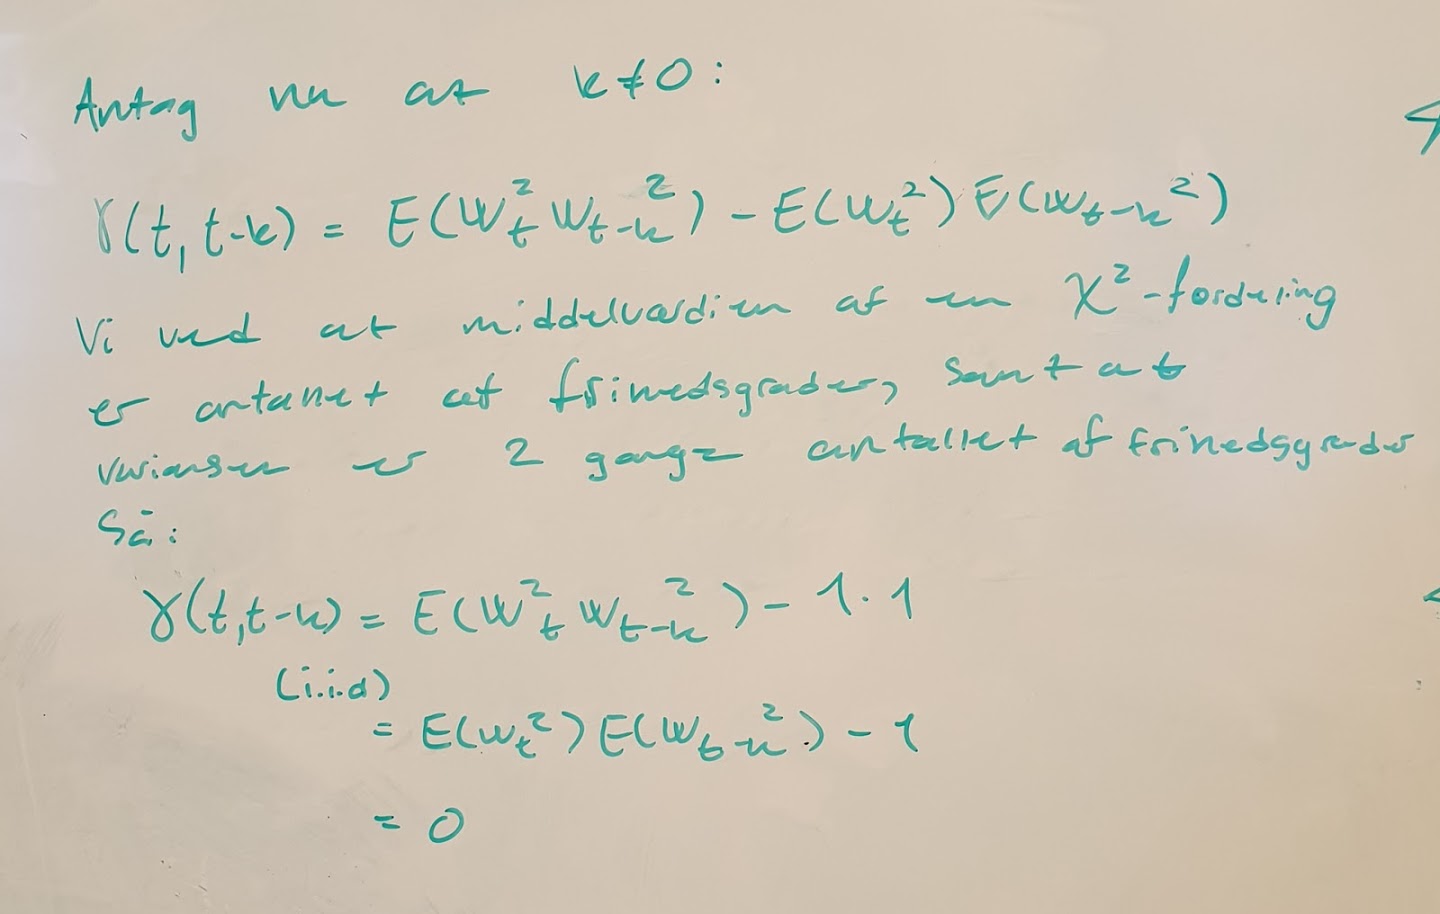 Antag nu at k≠0:
γ(t, t-k) = E(W_t² W_{t-k}²) - E(W_t²) E(W_{t-k}²)
Vi ved at middelværdien af en χ²-fordeling
er antallet af frihedsgrader, samt at
variansen er 2 gange antallet af frihedsgrader
Så:
γ(t,t-k) = E(W_t² W_{t-k}²) - 1·1
(i.i.d)
= E(W_t²) E(W_{t-k}²) - 1
= 0